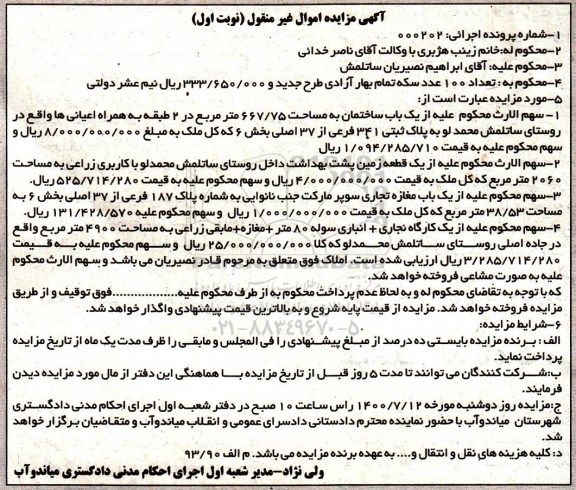 آگهی مزایده اموال غیر منقول (نوبت اول)
۱-شماره پرونده اجرائی: ۰۰۰۲۰۲
۲-محکوم له:خانم زینب هژبری با وکالت آقای ناصر خدائی
۳-محکوم علیه: آقای ابراهیم نصیریان ساتلمش
۴-محکوم به : تعداد ۱۰۰ عدد سکه تمام بهار آزادی طرح جدید و ۳۳۳/۶۵۰/۰۰۰ ریال نیم عشر دولتی
۵-مورد مزایده عبارت است از:
۱- سهم الارث محکوم علیه از یک باب ساختمان به مساحت ۶۶۷/۷۵ متر مربع در ۲ طبقه به همراه اعیانی ها واقع در
روستای ساتلمش محمد لو به پلاک ثبتی ۳۴۱ فرعی از ۳۷ اصلی بخش ۶ که کل ملک به مبلغ ۸/۰۰۰/۰۰۰/۰۰۰ ریال و
سهم محکوم علیه به قیمت ۱/۰۹۴/۲۸۵/۷۱۰ ریال
۲-سهم الارث محکوم علیه از یک قطعه زمین پشت بهداشت داخل روستای ساتلمش محمدلو با کاربری زراعی به مساحت
۲۰۶۰ متر مربع که کل ملک به قیمت ۴/۰۰۰/۰۰۰/۰۰۰ ریال و سهم محکوم علیه به قیمت ۵۲۵/۷۱۴/۲۸۰ ریال.
۳-سهم محکوم علیه از یک باب مغازه تجاری سوپر مارکت جنب نانوایی به شماره پلاک ۱۸۷ فرعی از ۳۷ اصلی بخش ۶ به
مساحت ۳۸/۵۳ متر مربع که کل ملک به قیمت ۱/۰۰۰/۰۰۰/۰۰۰ ریال و سهم محکوم علیه ۱۳۱/۴۲۸/۵۷۰ ریال.
۴-سهم محکوم علیه از یک کارگاه نجاری + انباری سوله ۸۰ متر +مغازه+مابقی زراعی به مساحت ۴۹۰۰ متر مربع واقع
در جاده اصلی روستای ساتلمش محمدلو که کلا ۲۵/۰۰۰/۰۰۰/۰۰۰ ریال و سهم محکوم علیه به قیمت
۳/۲۸۵/۷۱۴/۲۸۰ ریال ارزیابی شده است. املاک فوق متعلق به مرحوم قادر نصیریان می باشد و سهم الارث محکوم
علیه به صورت مشاعی فروخته خواهد شد.
که با توجه به تقاضای محکوم له و به لحاظ عدم پرداخت محکوم به از طرف محکوم علیه..................فوق توقیف و از طریق
مزایده فروخته خواهد شد. مزایده از قیمت پایه شروع و به بالاترین قیمت پیشنهادی واگذار خواهد شد.
۶-شرایط مزایده:
الف : برنده مزایده بایستی ده درصد از مبلغ پیشنهادی را فی المجلس و مابقی را ظرف مدت یک ماه از تاریخ مزایده
پرداخت نماید.
ب:شرکت کنندگان می توانند تا مدت ۵ روز قبل از تاریخ مزایده با هماهنگی این دفتر از مال مورد مزایده دیدن
فرمایند.
ج:مزایده روز دوشنبه مورخه ۱۴۰۰/۷/۱۲ راس ساعت ۱۰ صبح در دفتر شعبه اول اجرای احکام مدنی دادگستری
شهرستان میاندوآب با حضور نماینده محترم دادستانی دادسرای عمومی و انقلاب میاندوآب و متقاضیان برگزار خواهد
شد.
د: کلیه هزینه های نقل و انتقال و.... به عهده برنده مزایده می باشد. م الف ۹۳/۹۰
ولی نژاد-مدیر شعبه اول اجرای احکام مدنی دادگستری میاندوآب
۰۲۱-۸۸۳۴۹۶۷۰-۵